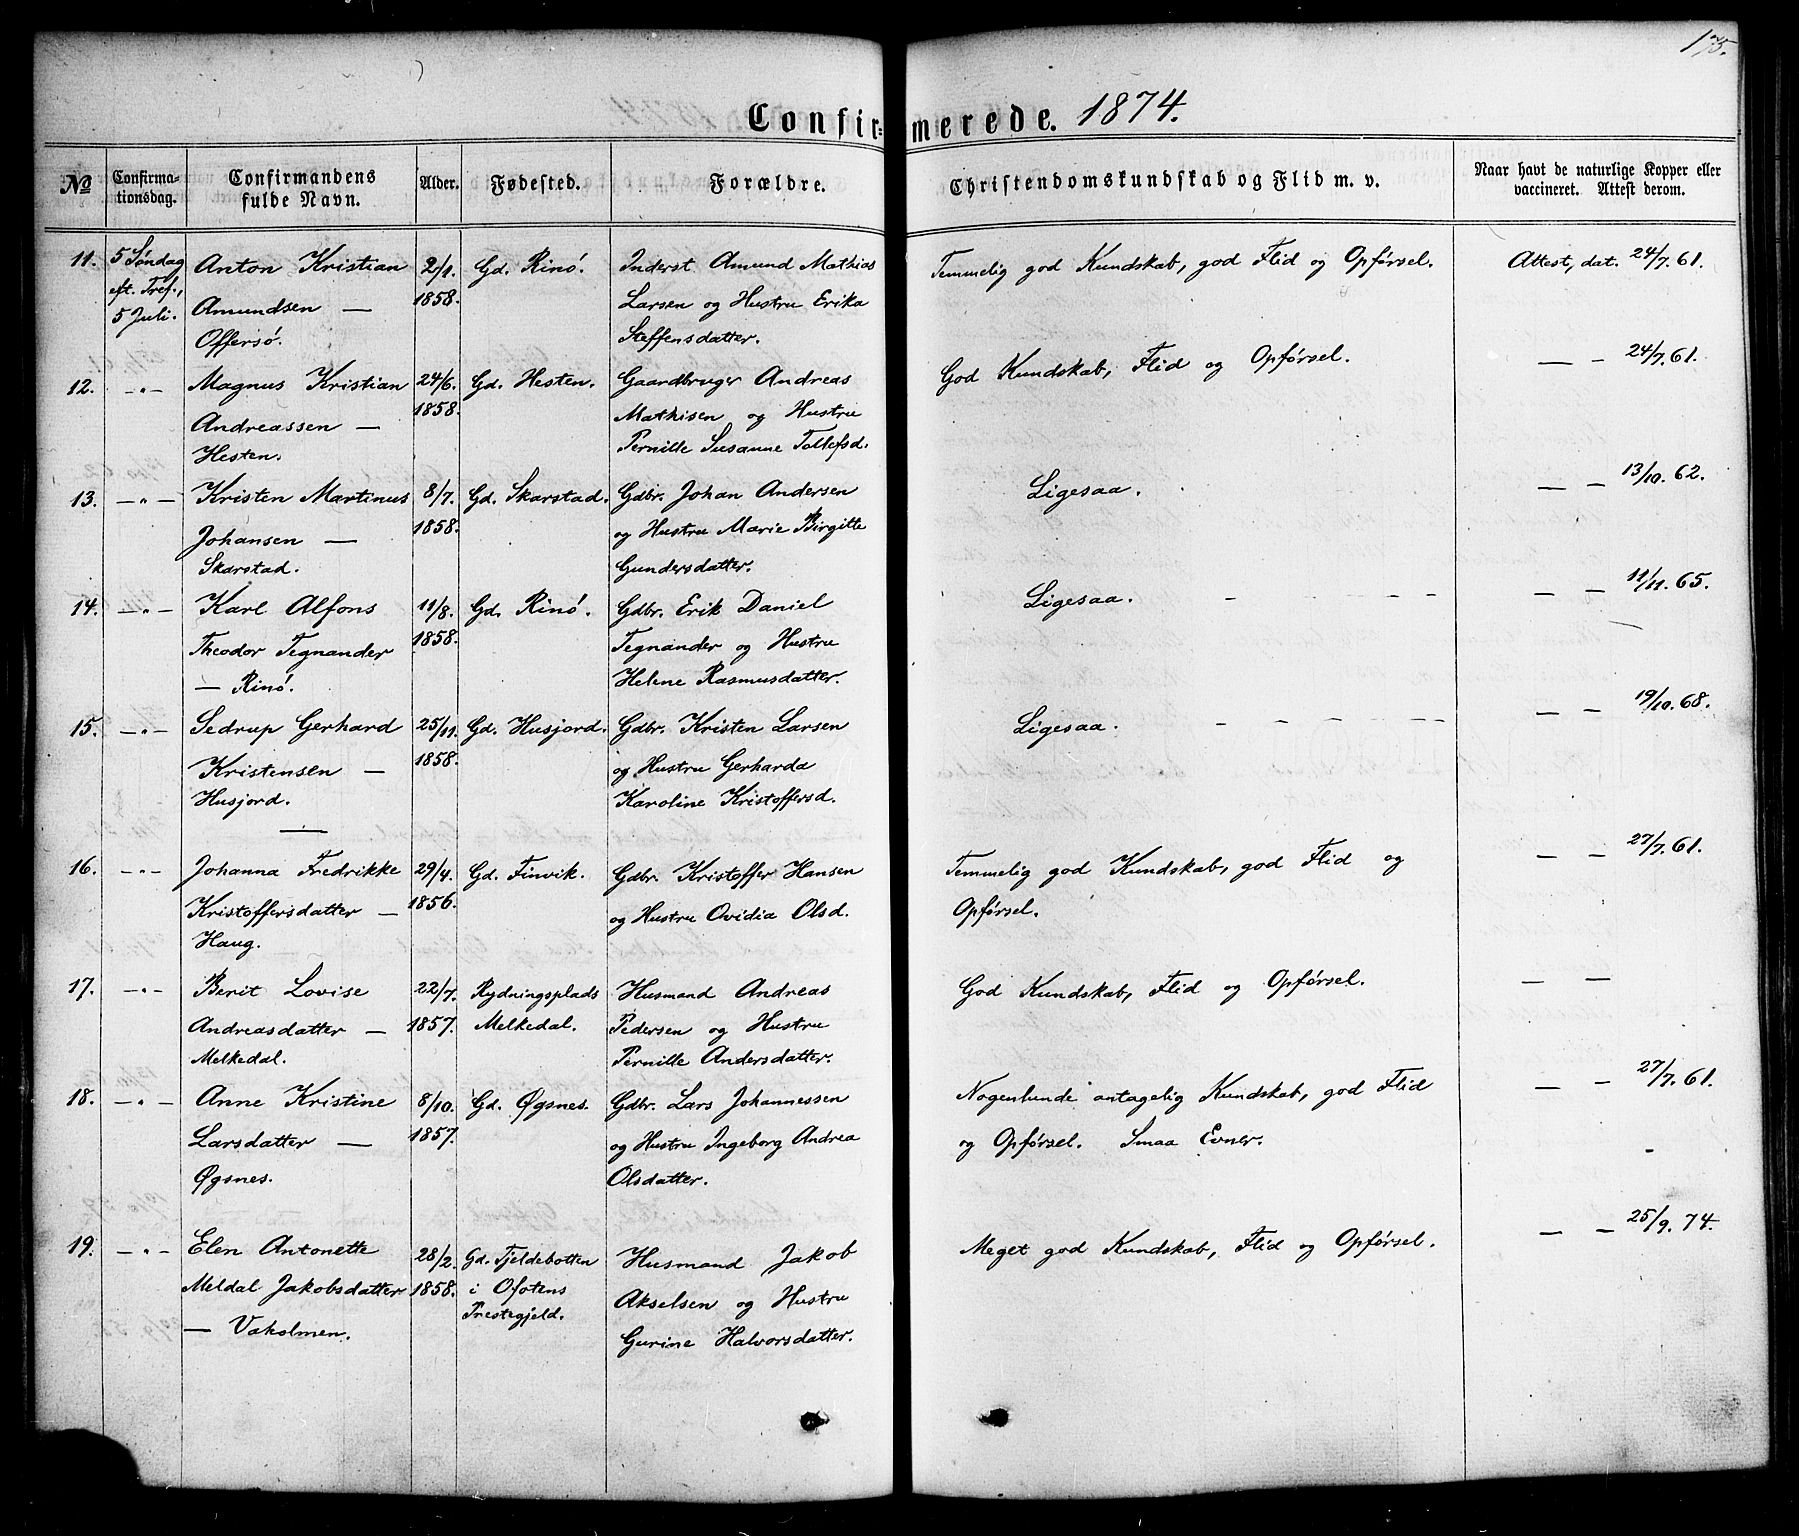 175.
Confirmerede. 1874.
No
Confirmationsdag.
Confirmandens fulde Navn.
Alder.
Fødested.
Forældre.
Christendomskundskab og Flid m. v.
Naar havt de naturlige Kopper eller vaccineret. Attest derom.
11. 5 Søndag Anton Kristian 2/1. Gd. Rinö. Inderst Amund Mathias Temmelig god Kundskab, god Flid og Opförsel. Attest, dat. 24/7. 61.
eft. Tref., Amundsen — 1858. Larsen og Hustru Erika
5 Juli. Offersö. Steffensdatter.
12. —"— Magnus Kristian 24/6. Gd. Hesten. Gaardbruger Andreas God Kundskab, Flid og Opförsel. — — 24/7. 61.
Andreassen — 1858. Mathisen og Hustru
Hesten. Pernille Susanne Tollefsd.
13. —"— Kristen Martinus 8/7. Gd. Skarstad. Gdbr. Johan Andersen Ligesaa. — — 13/10. 62.
Johansen — 1858. og Hustru Marie Birgitte
Skarstad. Gundersdatter.
14. —"— Karl Alfons 11/8. Gd. Rinö. Gdbr. Erik Daniel Ligesaa. — — 11/11. 65.
Theodor Tegnander 1858. Tegnander og Hustru
— Rinö. Helene Rasmusdatter.
15. —"— Sedrup Gerhard 25/11. Gd. Husjord. Gdbr. Kristen Larsen Ligesaa. — — 19/10. 68.
Kristensen — 1858. og Hustru Gerharda
Husjord. Karoline Kristoffersd.
16. —"— Johanna Fredrikke 29/4. Gd. Finvik. Gdbr. Kristoffer Hansen Temmelig god Kundskab, god Flid og — — 27/7. 61.
Kristoffersdatter — 1856. og Hustru Ovidia Olsd. Opförsel.
Haug.
17. —"— Berit Lovise 22/7. Rydningsplads Husmand Andreas God Kundskab, Flid og Opförsel. — —
Andreasdatter — 1857. Melkedal. Pedersen og Hustru
Melkedal. Pernille Andersdatter.
18. —"— Anne Kristine 8/10. Gd. Øgsnes. Gdbr. Lars Johannessen Nogenlunde antagelig Kundskab, god Flid — — 27/7. 61.
Larsdatter — 1857. og Hustru Ingeborg Andrea og Opförsel. Smaa Evner.
Øgsnes. Olsdatter.
19. —"— Elen Antonette 28/2. Gd. Fjeldebotten Husmand Jakob Meget god Kundskab, Flid og Opförsel. — — 25/9. 74.
Meldal Jakobsdatter 1858. i Ofotens Akselsen og Hustru
— Vakolmen. Prestegjeld. Gurine Halvorsdatter.